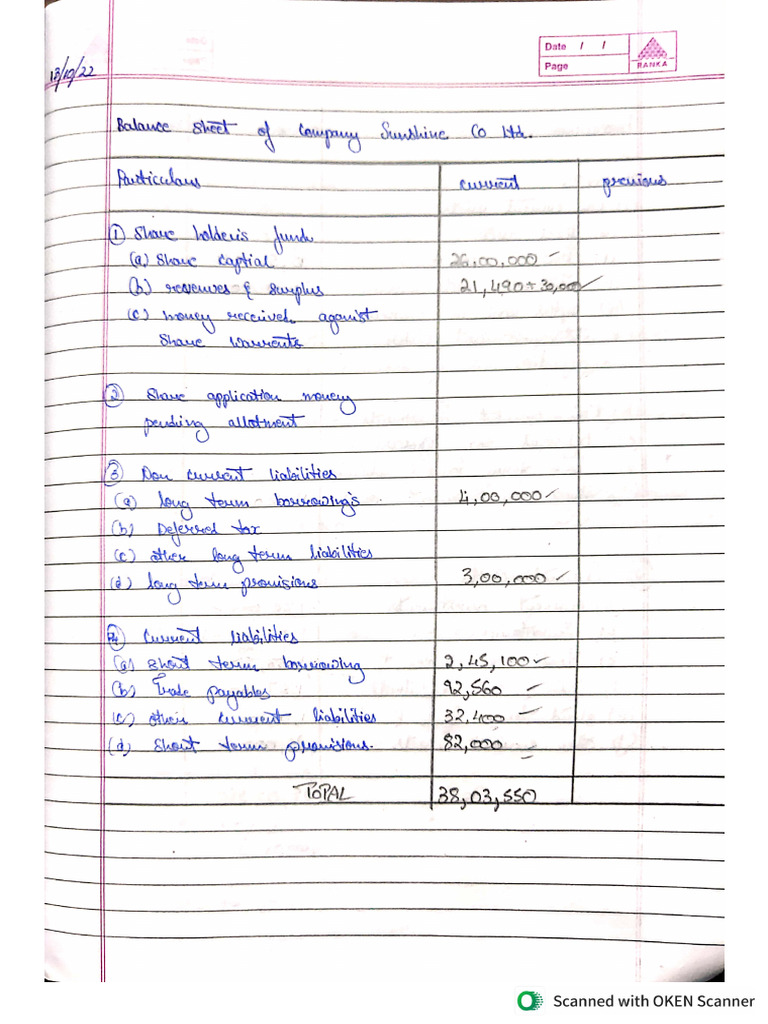 13/10/22
Date / /
Page
RANKA
Balance sheet of company Sunshine Co Ltd.
Particulars current previous
① Share holder's funds
(a) share captial 26,00,000 ✓
(b) reserves & surplus 21,490+30,000 ✓
(c) money received against
share warrents
② Share application money
pending allotment
③ Non current liabilities
(a) long term borrowing's 4,00,000 ✓
(b) Deferred tax
(c) other long term liabilities
(d) long term provisions 3,00,000 ✓
④ current liabilities
(a) short term borrowing 2,45,100 ✓
(b) Trade payables 92,560
(c) other current liabilities 32,400
(d) Short term provisions. 82,000
TOPAL 38,03,550
Scanned with OKEN Scanner